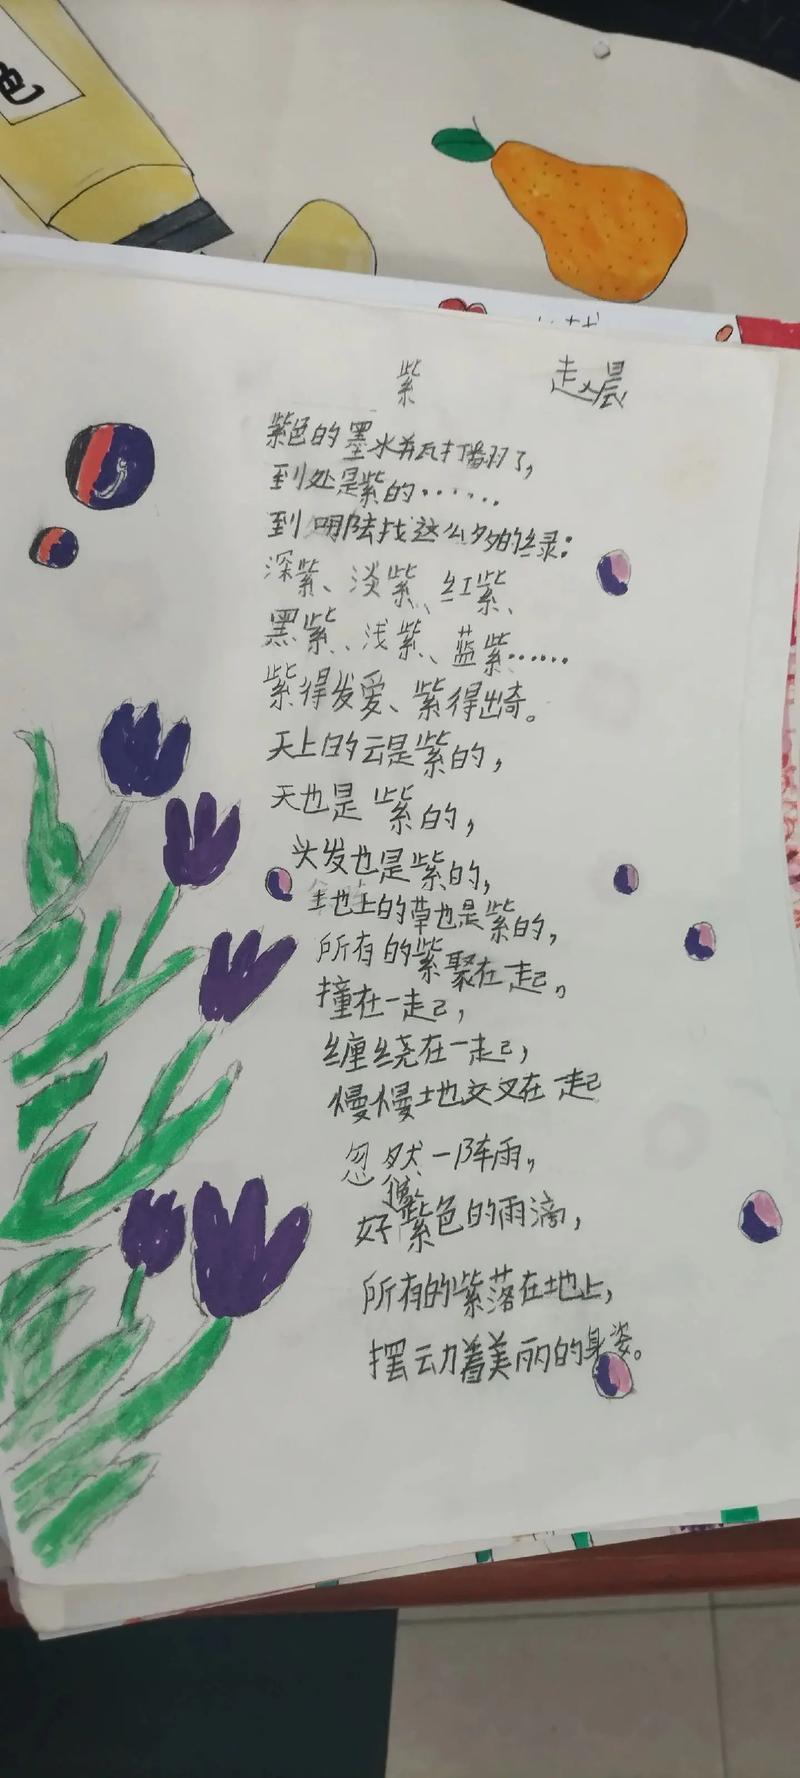 色
紫 赵晨
紫色的墨水并瓦打翻了,
到处是紫的……
到哪陆找这么多的绿:
深紫、淡紫、红紫、
黑紫、浅紫、蓝紫……
紫得发爱、紫得出奇。
天上的云是紫的,
天也是紫的,
头发也是紫的,
土地上的草也是紫的,
所有的紫聚在一起,
撞在一起,
缠绕在一起,
慢慢地交叉在一起
忽然一阵雨,
好像紫色的雨滴,
所有的紫落在地上,
摆动着美丽的身姿。